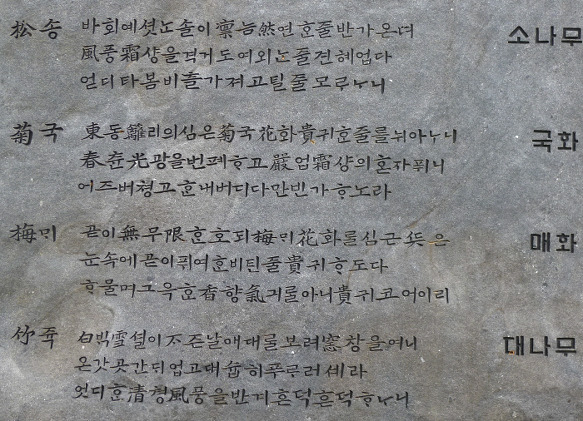 松송 바회예 셧ᄂᆞᆫ 솔이 凛늠然연ᄒᆞᆫ 줄 반가온뎌 소나무
風풍霜샹을 격거도 여외ᄂᆞᆫ 줄 젼혜 업다
얻디타 봄비츨 가져 고틸 줄 모ᄅᆞᄂᆞ니
菊국 東동籬리의 심은 菊국花화 貴귀ᄒᆞᆫ 줄를 뉘 아ᄂᆞ니 국화
春츈光광을 번폐ᄒᆞ고 嚴엄霜샹의 혼자 퓌니
어즈버 쳥고ᄒᆞᆫ 내 버디 다만 빈가 ᄒᆞ노라
梅ᄆᆡ 곧이 無무限한호ᄃᆡ 梅ᄆᆡ花화를 심근 ᄠᅳᆮ은 매화
눈 속에 곧이 퓌여 ᄒᆞᆫ 비틴 줄 貴귀ᄒᆞ도다
ᄒᆞ믈며 그윽ᄒᆞᆫ 香향氣긔를 아니 貴귀코 어이리
竹쥭 白ᄇᆡᆨ雪셜이 ᄌᆞᄌᆞᆫ 날애 대를 보려 窓창을 여니 대나무
온갓 곳 간 ᄃᆡ 업고 대숩히 푸르러셰라
엇디ᄒᆞᆫ 清쳥風풍을 반겨 흔덕흔덕 ᄒᆞᄂᆞ니